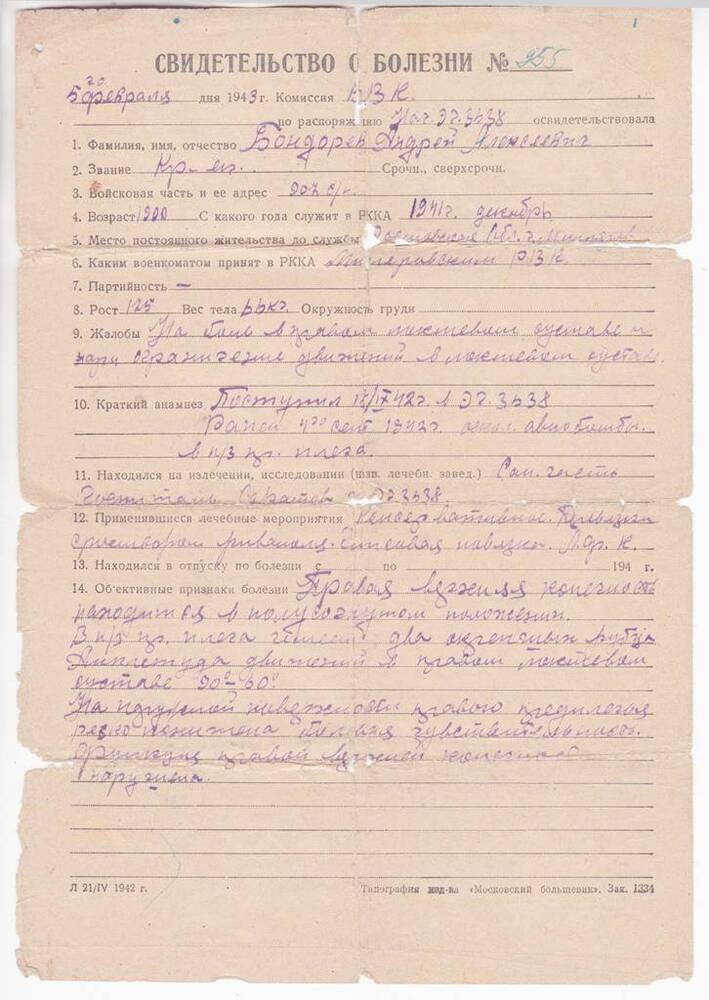 СВИДЕТЕЛЬСТВО О БОЛЕЗНИ № 955
5го февраля дня 1943 г. Комиссия ВВК.
по распоряжению Нач. ЭГ. 3638 освидетельствовала
1. Фамилия, имя, отчество Бондорев Андрей Алексеевич
2. Звание Кр-ец. Срочн., сверхсрочн.
3. Войсковая часть и ее адрес 902 с/п
4. Возраст 1900 С какого года служит в РККА 1941 г. декабрь
5. Место постоянного жительства до службы Ростовская Обл. г.
6. Каким военкоматом принят в РККА Милеровским РВК.
7. Партийность —
8. Рост 175 Вес тела 66 кг. Окружность груди
9. Жалобы На боль в правом локтевом суставе и
ограничение движений в локтевом сустав.
10. Краткий анамнез Поступил 18/IX 42 г. в ЭГ. 3638
Ранен 4го сент 1942 г. оскол. авиобомбы.
в н/3 пр. плеча.
11. Находился на излечении, исследовании (назв. лечебн. завед.) Сан. часть
Госпиталь Саратов ЭГ. 3638.
12. Применявшиеся лечебные мероприятия Консервативное.
раствором риваноля. Гипсовая повязка. Л.ф.к.
13. Находился в отпуску по болезни с по 194 г.
14. Объективные признаки болезни Правая верхняя конечность
находится в полусогнутом положении.
В н/3 пр. плеча имеет два окрепших рубца
Амплетуда движений в правом локтевом
суставе 90°-60°
На наружной поверхности правого предплечья
резко понижена болевая чувствительность.
Функция правой верхней конечности
нарушена.
Л 21/IV 1942 г. Типография изд-ва «Московский большевик». Зак. 1334